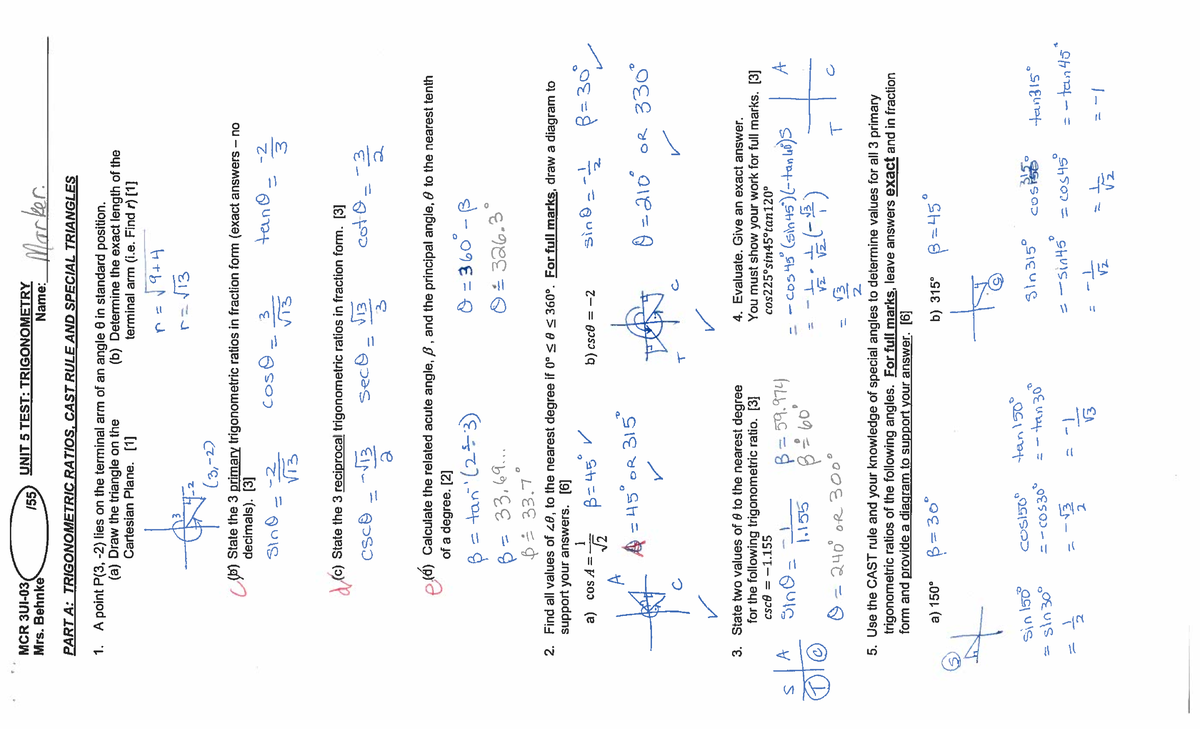 MCR 3UI-03 /55 UNIT 5 TEST: TRIGONOMETRY
Mrs. Behnke Name: Marker.
PART A: TRIGONOMETRIC RATIOS, CAST RULE AND SPECIAL TRIANGLES
1. A point P(3,-2) lies on the terminal arm of an angle θ in standard position.
(a) Draw the triangle on the Cartesian Plane. [1]
(b) Determine the exact length of the terminal arm (i.e. Find r) [1]
3
-2
(3,-2)
r = √9+4
r = √13
c (b) State the 3 primary trigonometric ratios in fraction form (exact answers – no decimals). [3]
sinθ = -2/√13 cosθ = 3/√13 tanθ = -2/3
d (c) State the 3 reciprocal trigonometric ratios in fraction form. [3]
cscθ = -√13/2 secθ = √13/3 cotθ = -3/2
e (d) Calculate the related acute angle, β, and the principal angle, θ to the nearest tenth of a degree. [2]
β = tan⁻¹(2÷3) θ = 360° - β
β = 33.69... θ ≐ 326.3°
β ≐ 33.7°
2. Find all values of ∠θ, to the nearest degree if 0° ≤ θ ≤ 360°. For full marks, draw a diagram to support your answers. [6]
a) cos A = 1/√2 β = 45° ✓
A
C
A = 45° OR 315°
b) cscθ = -2 sinθ = -1/2 β = 30° ✓
T C
θ = 210° OR 330°
3. State two values of θ to the nearest degree for the following trigonometric ratio. [3]
cscθ = -1.155
S A
T C
sinθ = -1/1.155 β = 59.974)
β ≐ 60°
θ = 240° OR 300°
4. Evaluate. Give an exact answer.
You must show your work for full marks. [3]
cos225°sin45°tan120°
= -cos45°(sin45°)(-tan60°)
= -1/√2 • 1/√2 (-√3/1)
= √3/2
S A
T C
5. Use the CAST rule and your knowledge of special angles to determine values for all 3 primary trigonometric ratios of the following angles. For full marks, leave answers exact and in fraction form and provide a diagram to support your answer. [6]
a) 150° β = 30°
S
sin150° cos150° tan150°
= sin30° = -cos30° = -tan30°
= 1/2 = -√3/2 = -1/√3
b) 315° β = 45°
C
sin315° cos 315° tan315°
= -sin45° = cos45° = -tan45°
= -1/√2 = 1/√2 = -1